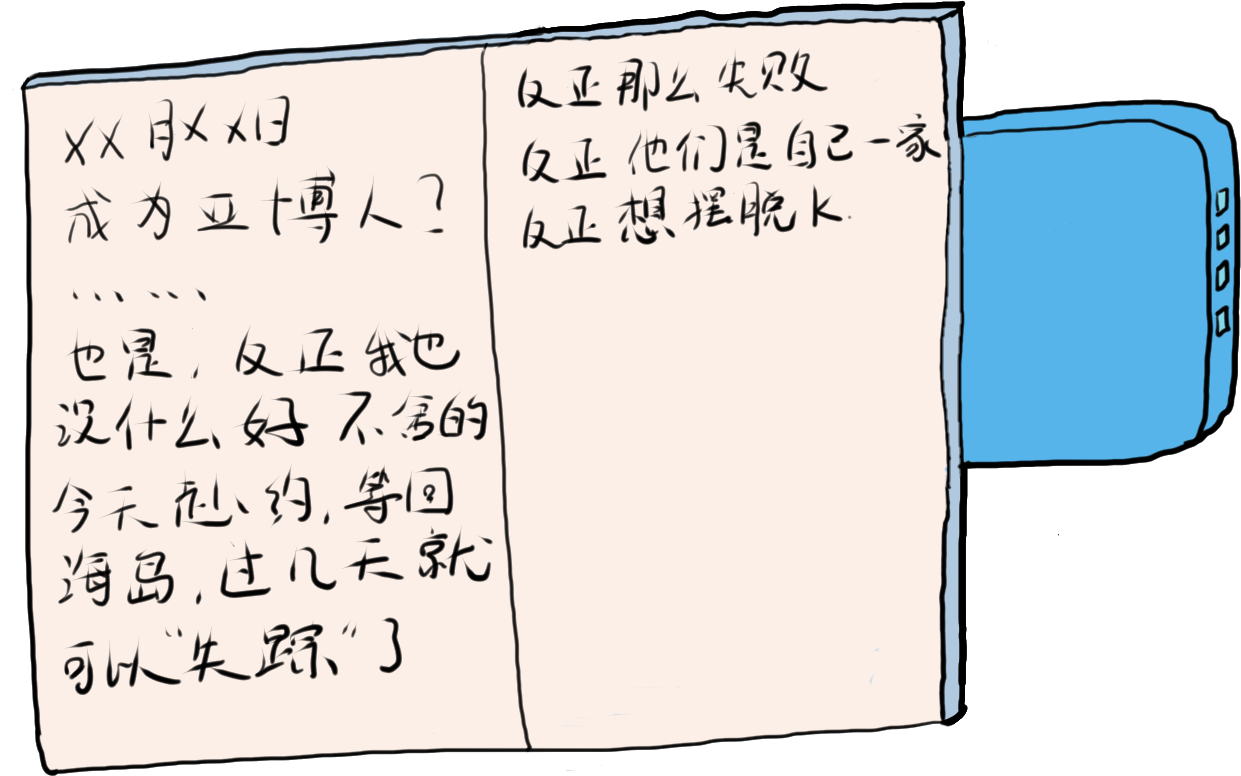 XX月XX日
成为亚博人？
……
也是，反正我也
没什么好不舍的
今天赴约，等回
海岛，过几天就
可以“失踪”了
反正那么失败
反正他们是自己一家
反正想摆脱K.